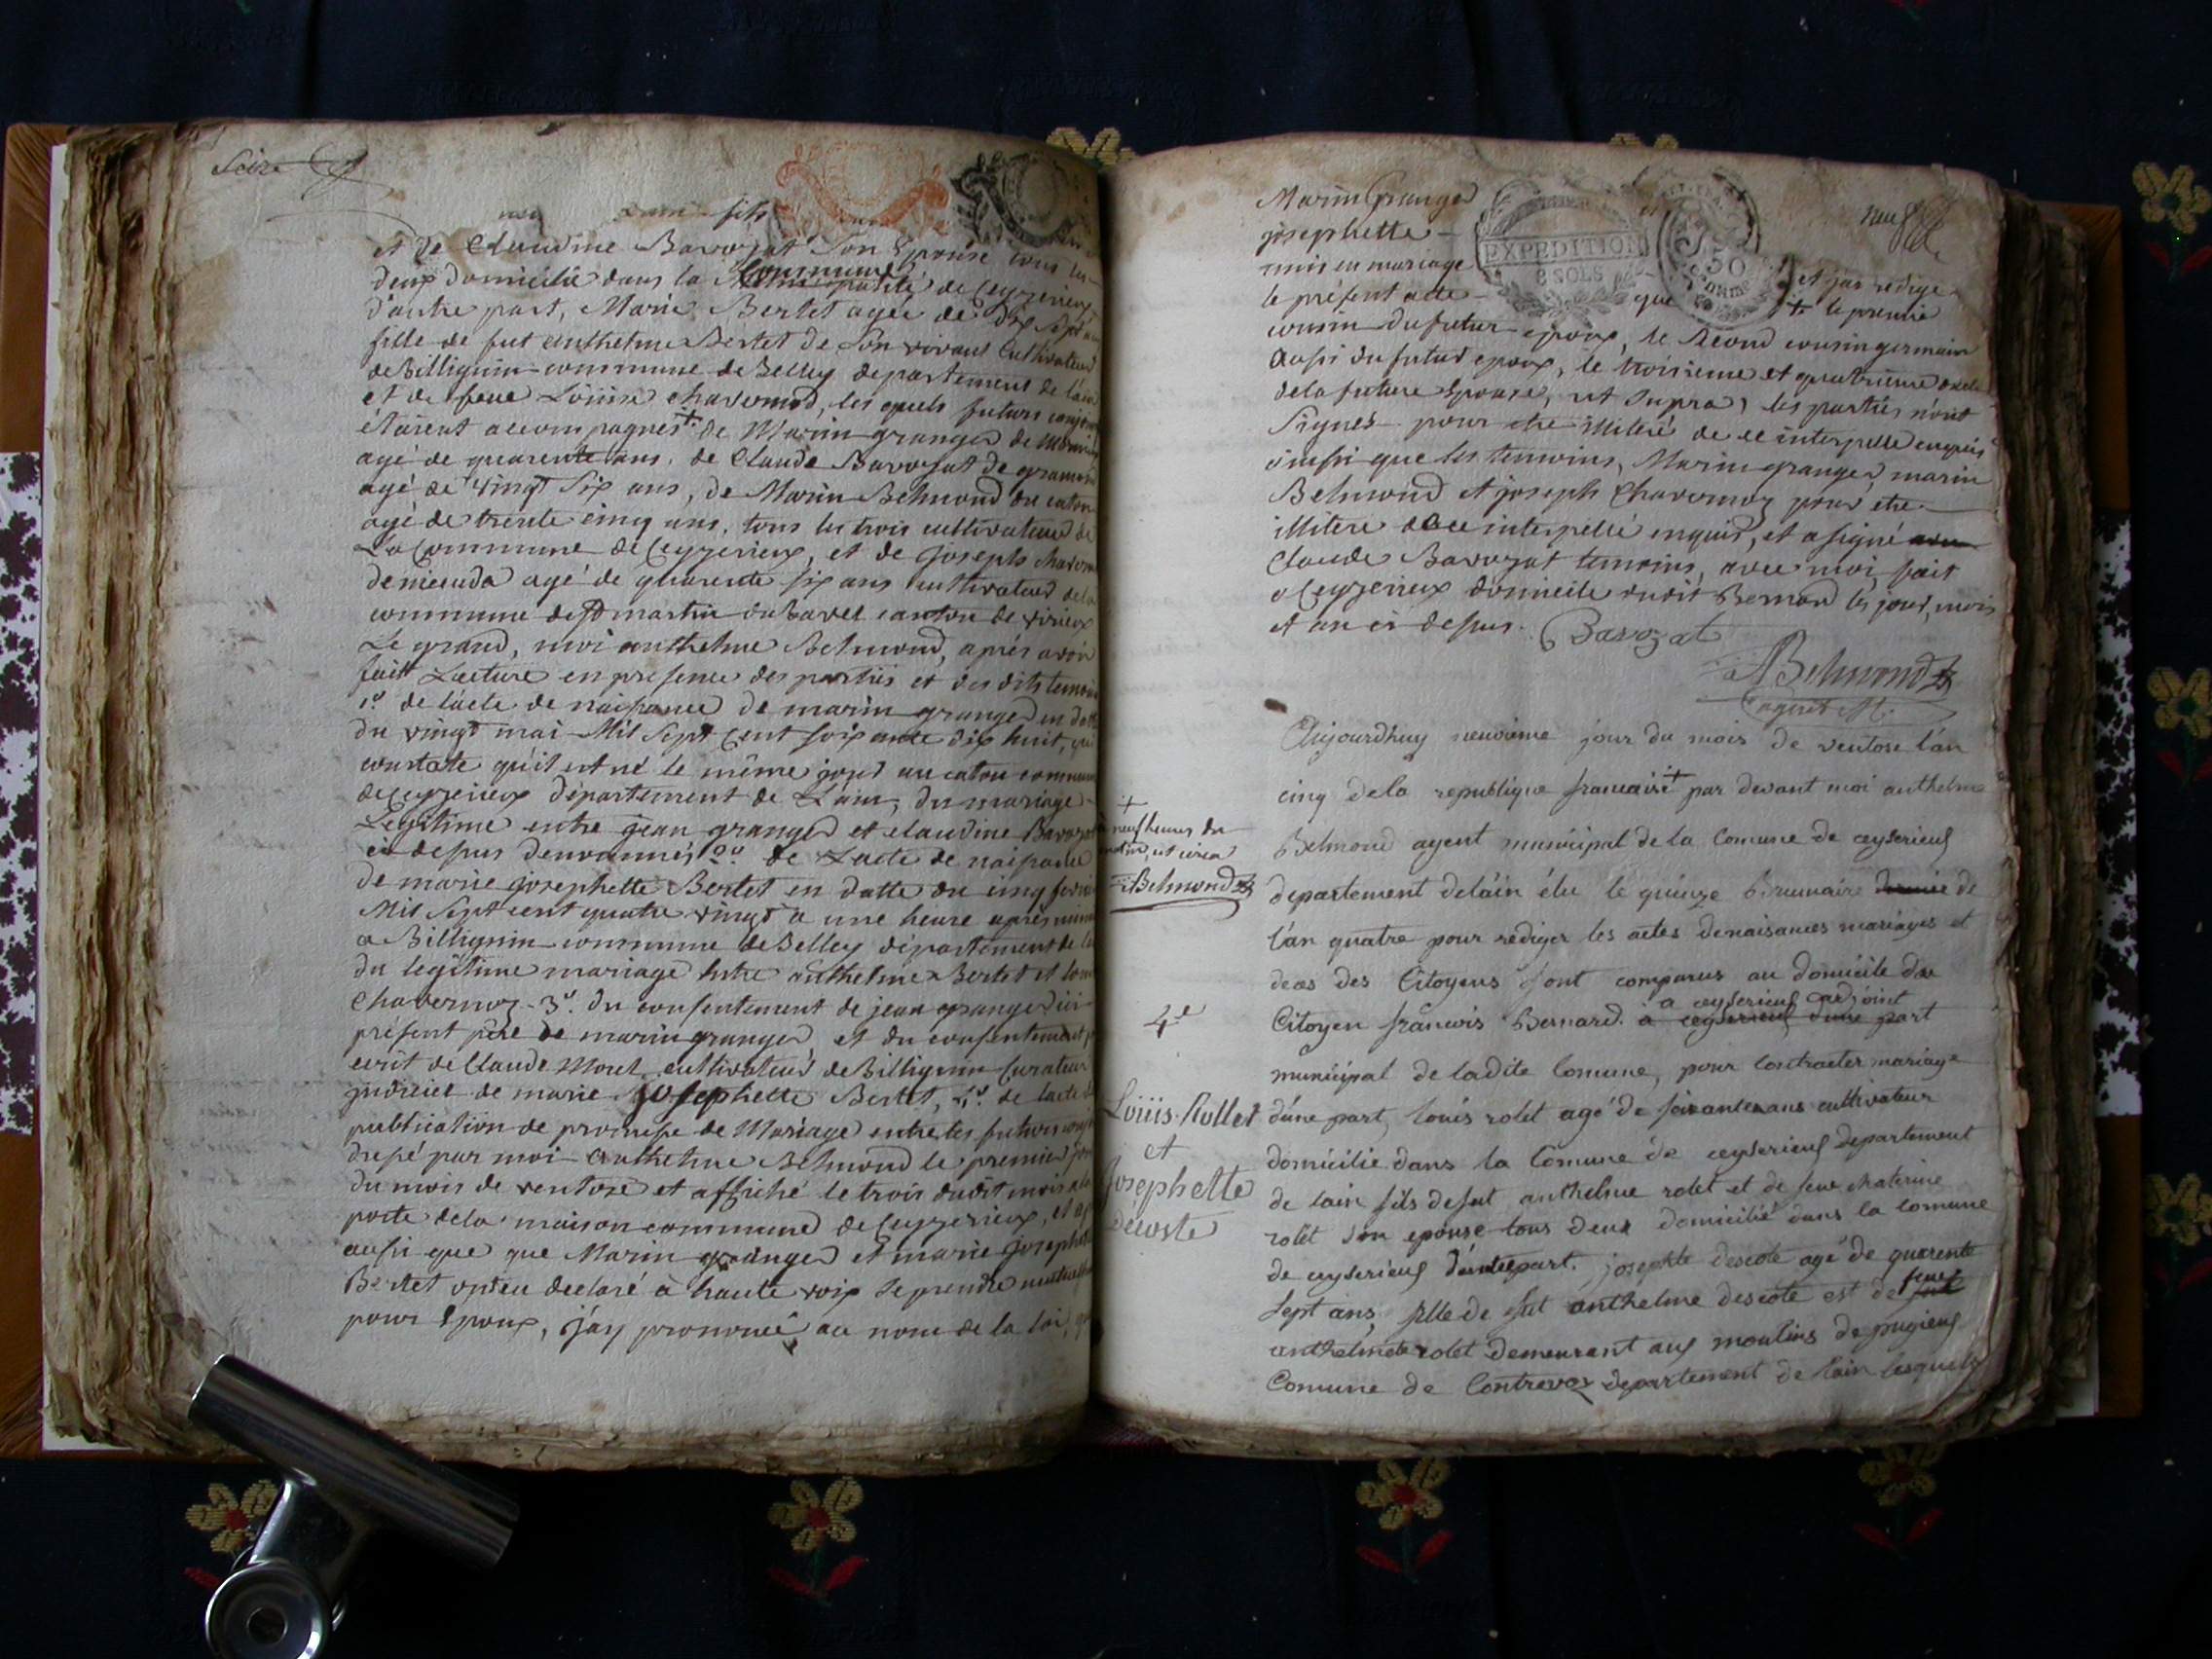 Seize
fils
et de Claudine Bavozat Son Epouse tous les
deux domicilié dans la Commune de Ceyzerieux
d'autre part, Marie Bertet agée de dix sept
fille de fut anthelme Bertet de Son vivant Cultivateur
de Billignin commune de Belley departement de l'ain
et de feue Loüise chavernod, les quels futurs conjoin
étaient accompagnés + de Marin granger de
agé de quarente ans, de Claude Bavozat de
agé de vingt Six ans, de Marin Belmond du caton
agé de trente cinq ans, tous les trois cultivateurs de
La Commune de Ceyzerieux, et de joseph
demieuda agé de quarente six ans cultivateur de la
commune de St martin du Bavel canton de virieux
Le grand, moi anthelme Belmond, après avoir
fait Lecture en presence des parties et des dits temoin
1º de lacte de naissance de marin granger en datte
du vingt mai Mil Sept Cent soixante dix huit, qui
constate qu'il est né le même jour au caton commune
de Ceyzerieux département de L'ain, du mariage
Legitime entre jean granger et claudine Bavozat
ci depus denommés 2º de Lacte de naissance
de marie josephette Bertet en datte du cinq
Mil Sept cent quatre vingt a une heure après
a Billignin commune de Belley département de
du legitime mariage entre anthelme Bertet et
Chavernoz 3º du consentement de jean granger ici
présent père de marin granger, et du consentement
ecrit de Claude Moret cultivateur de Billignin Curateur
judiciel de marie Josephette Bertet, 4º de lacte
publication de promesse de Mariage entre les futurs
dressé par moi Anthelme Belmond le premier jour
du mois de ventose et affiché le trois dudit mois
porte de la maison commune de Ceyzerieux, et
aussi que que Marin granger et marie joseph
Bertet ont eu declaré à haute voix se prendre
pour Epoux, j'ay prononcé au nom de la loi,
Marin Granger
josephette
unis en mariage
EXPEDITION
8 SOLS
neuf
et jai redigé
le présent acte que + le premier
cousin du futur epoux, le Second cousin germain
aussi du futur epoux, le troisieme et quatrieme
de la future Epouse, ut Supra, les parties n'ont
Signés pour etre illiteré de ce interpellé enquis
ainsi que les temoins, Marin granger, marin
Belmond et joseph Chavernoz pour etre
illitere de ce interpellé enquis, et a signé
Claude Bavozat temoins, avec moi, fait
a Ceyzerieux domicile dudit Bernard les jour, mois
et an ci depus. Bavozat
ABelmond
agent M.
Aujourdhuy neuvième jour du mois de ventose l'an
cinq de la republique francaise + par devant moi anthelme
+
neuf heures du
matin
Belmond
Belmond agent municipal de la Comune de ceyserieuf
departement de l'ain élu le quinze brumaire dernie de
l'an quatre pour rediger les actes de naisances mariages et
deces des Citoyens Sont comparus au domicile du
a ceyserieuf adjoint
Citoyen francois Bernard a ceyserieuf dune part
4e
municipal de ladite Comune, pour contracter mariage
Loüis Rollet
et
Josephette
decoste
d'une part, louis rolet agé de soixante ans cultivateur
domicilié dans la Comune de ceyserieuf departement
de lain fils de fut anthelme rolet et de feue chaterine
rolet Son epouse tous deux domicilié dans la comune
de ceyserieuf d'autre part. josephte descote agé de quarente
Sept ans, fille de fut anthelme descote est de feue
anthelmete rolet demeurant auf moulins de pugieuf
Comune de Contrevoz departement de lain lesquels